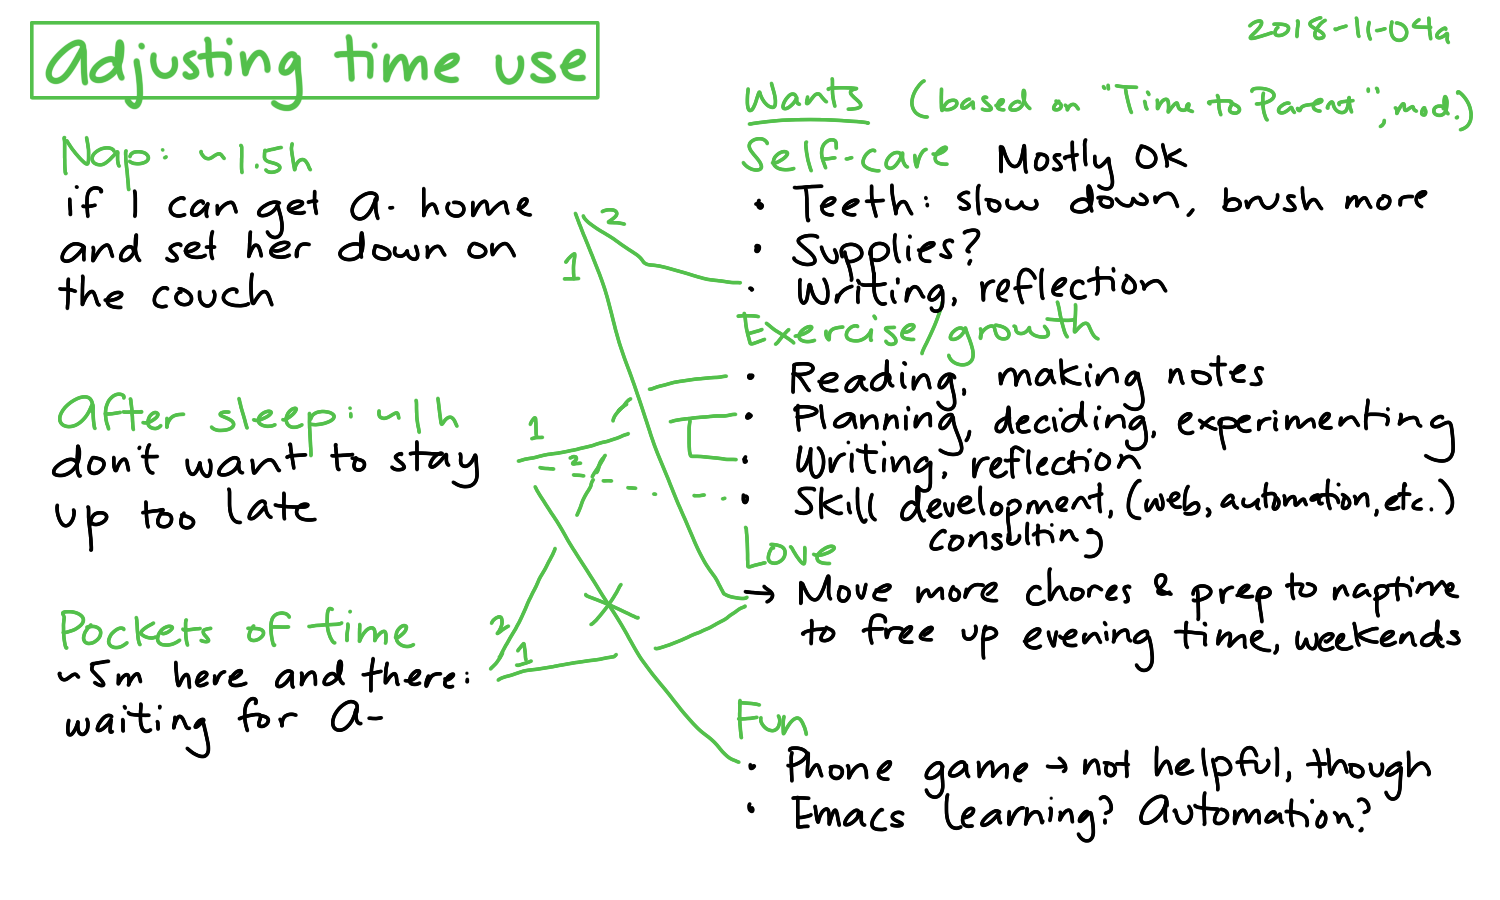 Adjusting time use
2018-11-04a
Nap: ~1.5h
if I can get A- home
and set her down on
the couch
After sleep: ~1h
don't want to stay
up too late
Pockets of time
~5m here and there:
waiting for A-
2
1
1
2
2
1
Wants (based on "Time to Parent", mod.)
Self-care Mostly OK
• Teeth: slow down, brush more
• Supplies?
• Writing, reflection
Exercise/growth
• Reading, making notes
• Planning, deciding, experimenting
• Writing, reflection
• Skill development, (web, automation, etc.)
consulting
Love
→ Move more chores & prep to naptime
to free up evening time, weekends
Fun
• Phone game → not helpful, though
• Emacs learning? Automation?